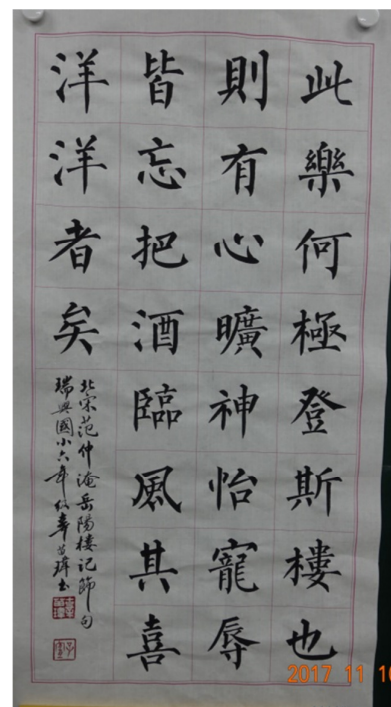 此樂何極登斯樓也
則有心曠神怡寵辱
皆忘把酒臨風其喜
洋洋者矣
北宋范仲淹岳陽樓記節句
瑞興國小六年
2017 11 10